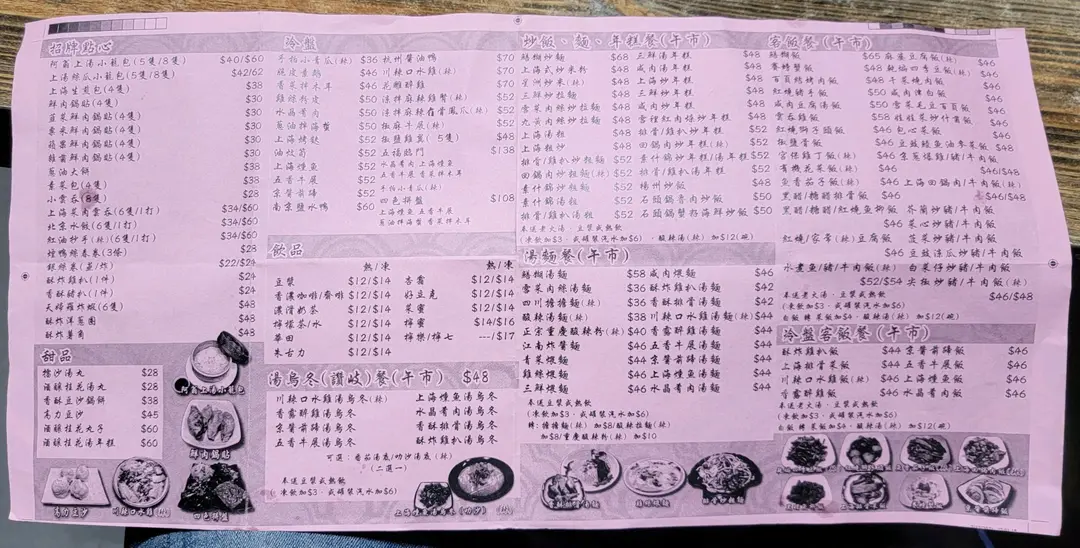 招牌點心
阿翁上湯小籠包(5隻/8隻) $40/$60
上湯絲瓜小籠包(5隻/8隻) $42/62
上海生煎包(4隻) $38
鮮肉鍋貼(4隻) $30
韮菜鮮肉鍋貼(4隻) $30
粟米鮮肉鍋貼(4隻) $30
蘋果鮮肉鍋貼(4隻) $30
雜菌鮮肉鍋貼(4隻) $30
葱油大餅 $38
素菜包(4隻) $38
小雲吞(8隻) $28
上海菜肉雲吞(6隻/1打) $34/$60
北京水餃(6隻/1打) $34/$60
紅油抄手(辣)(6隻/1打) $34/$60
煌鴨絲春卷(3條) $28
銀絲卷(蒸/炸) $22/$24
酥炸雞扒(1件) $24
香酥豬扒(1件) $24
天婦羅炸蝦(6隻) $48
酥炸洋葱圈 $48
酥炸薯角 $48
甜品
擂沙湯丸 $28
酒釀桂花湯丸 $28
香酥豆沙鍋餅 $38
高力豆沙 $45
酒釀桂花丸子 $60
酒釀桂花湯年糕 $60
阿翁上湯小籠包
鮮肉鍋貼
高力豆沙
川辣口水雞(辣)
四色拼盤
冷盤
手拍小青瓜(辣) $36
脆皮素鵝 $46
香菜拌木耳 $46
雞絲粉皮 $50
水晶肴肉 $50
葱油拌海蜇 $50
上海烤麩 $52
油炆筍 $52
上海燻魚 $52
五香牛展 $52
京醬前蹄 $52
南京鹽水鴨 $60
杭州醬油鴨 $70
川辣口水雞(辣) $70
花雕醉雞 $70
涼拌麻辣雞腎(辣) $52
涼拌麻辣雀胃鳳瓜(辣) $52
椒麻牛展(辣) $52
椒鹽雞翼(5隻) $48
五福臨門 $138
水晶肴肉 上海燻魚
五香牛展 香菜拌木耳
手拍小青瓜(辣)
四色拼盤 $108
上海燻魚 五香牛展
葱油拌海蜇 香菜拌木耳
飲品
熱/凍
豆漿 $12/$14
香濃咖啡/齋啡 $12/$14
濃滑奶茶 $12/$14
檸檬茶/水 $12/$14
華田 $12/$14
朱古力 $12/$14
熱/凍
杏霜 $12/$14
好立克 $12/$14
菜蜜 $12/$14
檸蜜 $14/$16
檸樂/檸七 ---/$17
湯烏冬(讚岐)餐(午市) $48
川辣口水雞湯烏冬(辣)
香露醉雞湯烏冬
京醬前蹄湯烏冬
五香牛展湯烏冬
上海燻魚湯烏冬
水晶肴肉湯烏冬
香酥排骨湯烏冬
酥炸雞扒湯烏冬
可選：番茄湯底/叻沙湯底(辣)
(二選一)
奉送豆漿或熱飲
(凍飲加$3、或罐裝汽水加$6)
上海燻魚湯烏冬(叻沙)(辣)
炒飯、麵、年糕餐(午市)
鱔糊炒麵 $68
上海式炒米粉 $48
星州炒米(辣) $48
三鮮炒拉麵 $48
雪菜肉絲炒拉麵 $48
九黃肉絲炒拉麵 $48
上海湯粗 $48
上海粗炒 $48
排骨/雞扒炒拉麵 $52
回鍋肉炒粗麵(辣) $52
素什錦炒粗麵 $52
素什錦湯粗 $52
排骨/雞扒湯粗 $52
三鮮湯年糕 $48
咸肉湯年糕 $48
上海炒年糕 $48
三鮮炒年糕 $48
咸肉炒年糕 $48
宮裡紅肉絲炒年糕 $48
排骨/雞扒炒年糕 $52
回鍋肉炒年糕(辣) $52
素什錦炒年糕/湯年糕 $52
排骨/雞扒湯年糕 $52
楊州炒飯 $50
石頭鍋肴肉炒飯 $50
石頭鍋蟹粉海鮮炒飯 $50
奉送老火湯、豆漿或熱飲
(凍飲加$3、或罐裝汽水加$6)、酸辣湯(辣)加$12(碗)
湯麵餐(午市)
鱔糊湯麵 $58
雪菜肉絲湯麵 $36
四川擔擔麵(辣) $36
酸辣湯麵(辣) $38
正宗重慶酸辣粉(辣) $40
江南炸醬麵 $46
菁菜煨麵 $44
雞絲煨麵 $46
三鮮煨麵 $46
咸肉煨麵 $46
酥炸雞扒湯麵 $42
香酥排骨湯麵 $42
川辣口水雞湯麵(辣) $44
香露醉雞湯麵 $44
五香牛展湯麵 $44
京醬前蹄湯麵 $44
上海燻魚湯麵 $44
水晶肴肉湯麵 $44
奉送豆漿或熱飲
(凍飲加$3、或罐裝汽水加$6)
轉：擔擔麵(辣)加$8/酸辣拉麵(辣)
加$8/重慶酸辣粉(辣)加$10
客飯餐(午市)
鱔糊飯 $65
賽螃蟹飯 $48
百頁結烤肉飯 $48
紅燒豬手飯 $50
咸肉豆腐湯飯 $50
雲吞雞飯 $58
紅燒獅子頭飯 $46
椒鹽骨飯 $46
宮保雞丁飯(辣) $46
有機花菜飯(辣)
魚香茄子飯(辣) $46
黑醋/糖醋排骨飯
黑醋/糖醋/紅燒魚柳飯 $46
紅燒/家常(辣)豆腐飯 $46
水煮魚/豬/牛肉飯(辣) $52/$54
麻婆豆腐飯(辣) $46
乾煸四季豆飯(辣) $46
干菜燒肉飯 $46
咸肉津白飯 $46
雪菜毛豆百頁飯 $46
娃娃菜炒什菌飯 $46
包心菜飯 $46
豆豉鯪魚油麥菜飯 $48
京葱爆雞/豬/牛肉飯 $46/$48
上海回鍋肉/牛肉飯(辣) $46/$48
芥蘭炒豬/牛肉飯
菜心炒豬/牛肉飯
菠菜炒豬/牛肉飯
豆豉涼瓜炒豬/牛肉飯
白菜仔炒豬/牛肉飯
尖椒炒豬/牛肉飯 $46/$48
奉送老火湯、豆漿或熱飲
(凍飲加$3、或罐裝汽水加$6)
白飯 轉菜飯加$4、酸辣湯(辣)加$12(碗)
冷盤客飯餐(午市)
酥炸雞扒飯 $44
上海排骨飯 $44
川辣口水雞飯(辣) $46
香露醉雞飯 $46
京醬前蹄飯 $46
五香牛展飯 $46
上海燻魚飯 $46
水晶肴肉飯 $46
奉送老火湯、豆漿或熱飲
(凍飲加$3、或罐裝汽水加$6)
白飯 轉菜飯加$4、酸辣湯(辣)加$12(碗)